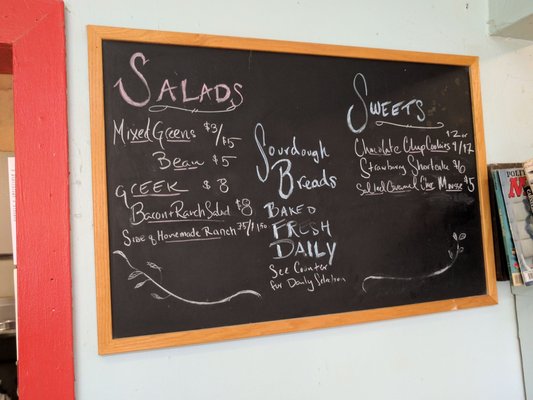 Salads
Mixed Greens $3/$5
Bean $5
Greek $8
Bacon + Ranch Salad $8
Side of Homemade Ranch .75/1.50
Sourdough
Breads
Baked
Fresh
Daily
See Counter
for Daily Selection
Sweets
$2 or
Chocolate Chip Cookies
Strawberry Shortcake $6
Salted Caramel Choc Mousse $5